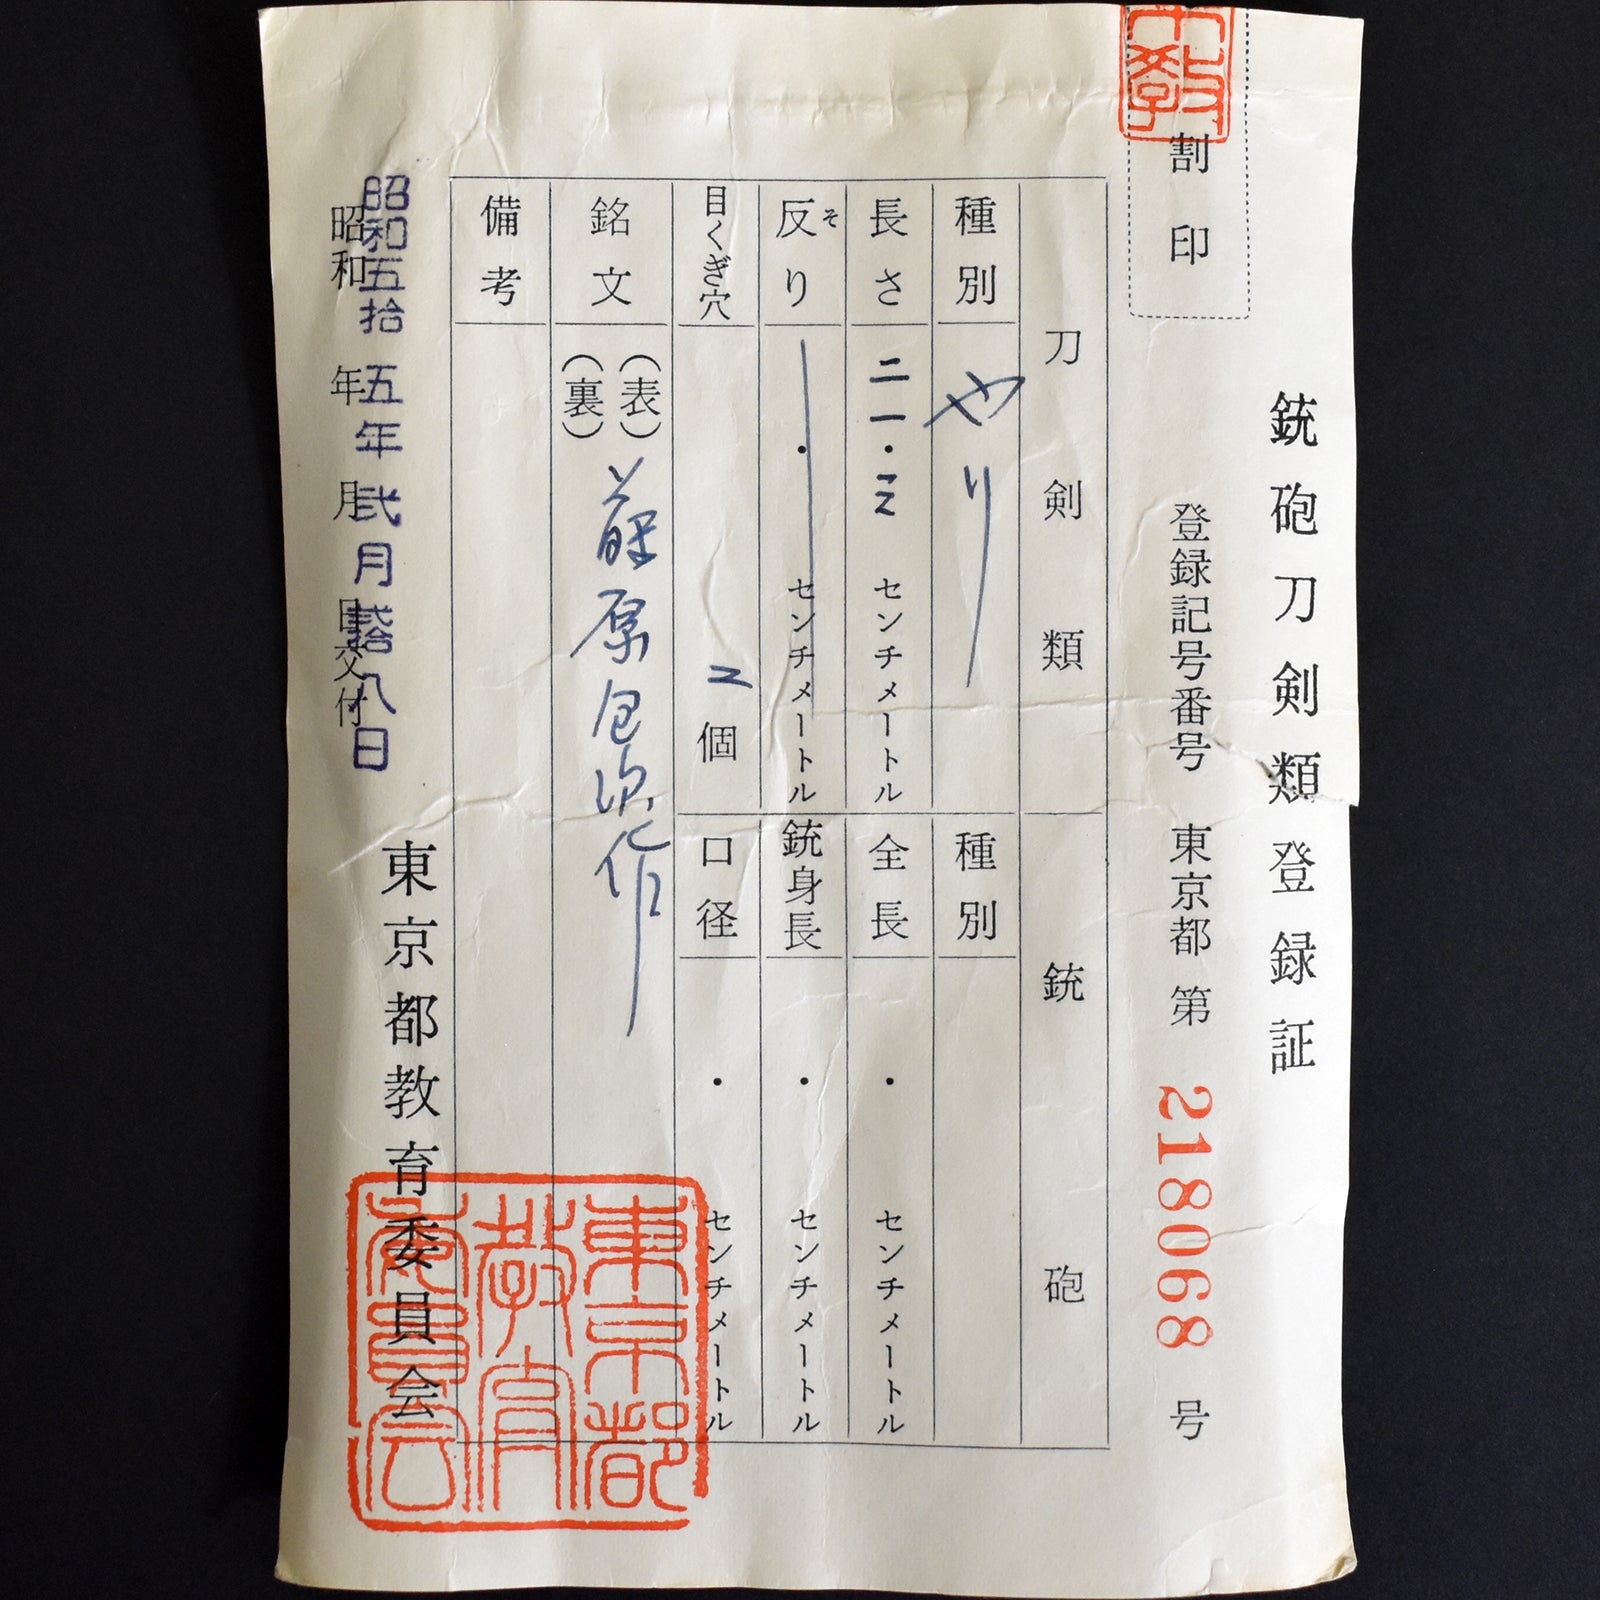 銃砲刀剣類登録証
割印
登録記号番号 東京都 第 218068 号
刀剣類
銃砲
種別 やり
種別
長さ 二一・三 センチメートル
全長 ・ センチメートル
反り そ ・ センチメートル
銃身長 ・ センチメートル
目くぎ穴 二個
口径 ・ センチメートル
銘文 (表) 藤原包次作
(裏)
備考
東京都教育委員会
昭和五拾五年弐月弐拾八日
昭和 年 月 日交付
東京都
教育
委員会